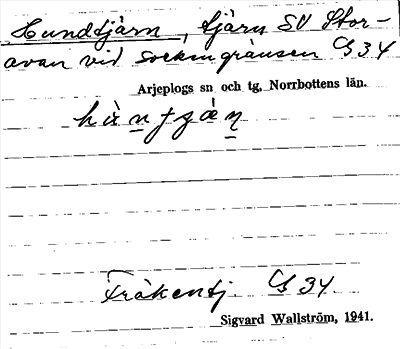 Hundtjärn, tjärn SV Stor-
avan vid sockengränsen G34
Arjeplogs sn och tg, Norrbottens län.
Fräkentj. G34
Sigvard Wallström, 1941.